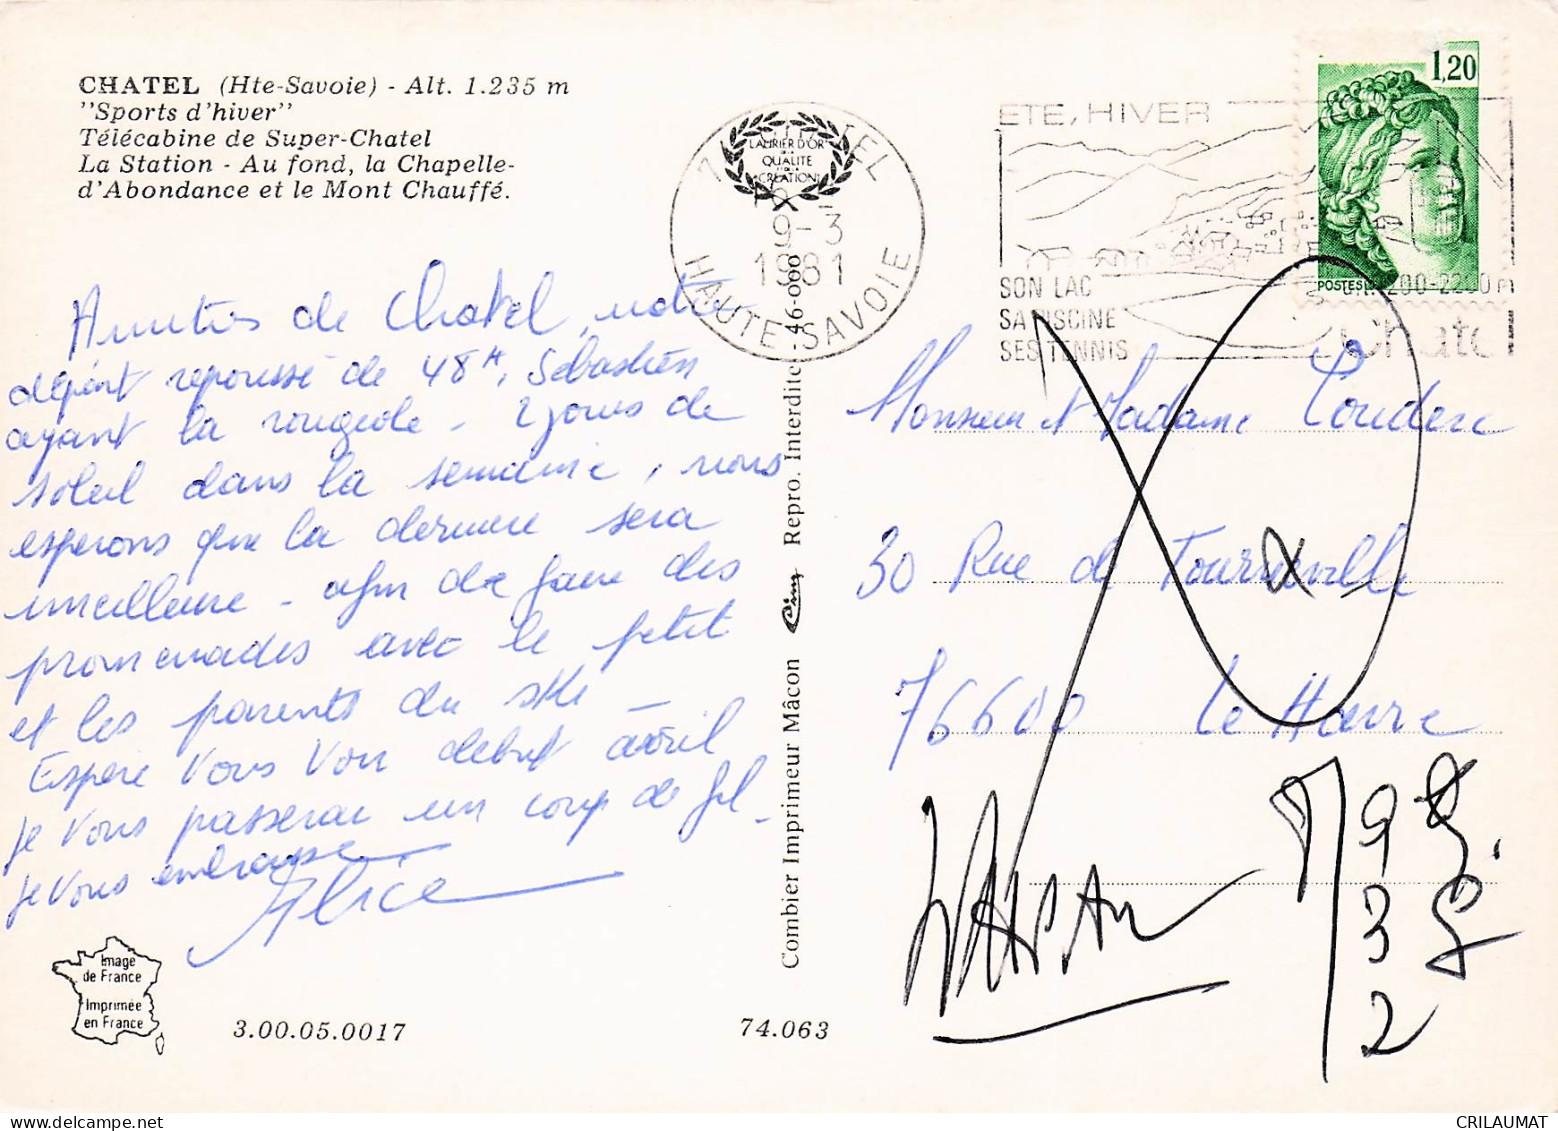 CHATEL (Hte-Savoie) - Alt. 1.235 m
"Sports d'hiver"
Télécabine de Super-Chatel
La Station - Au fond, la Chapelle-
d'Abondance et le Mont Chauffé.
Amitiés de Chatel, notre
départ repoussé de 48H, Sébastien
ayant la rougeole - 2 jours de
soleil dans la semaine, nous
esperons que la derniere sera
meilleure - afin de faire des
promenades avec le petit
et les parents du ski -
Espère vous voir debut avril
je vous passerai un coup de fil -
je vous embrasse
Alice
Image
de France
Imprimée
en France
3.00.05.0017
74.063
Combier Imprimeur Mâcon Cim Repro. Interdite 46-000
LAURIER D'OR
DE LA
QUALITE
CREATION
74 CHATEL
9-3
1981
HAUTE-SAVOIE
ETE, HIVER
SON LAC
SA PISCINE
SES TENNIS
1200-2200 m
Chatel
1,20
POSTES
Monsieur et Madame Couderc
30 Rue de Tourneville
76600 Le Havre
9
3
2
CRILAUMAT